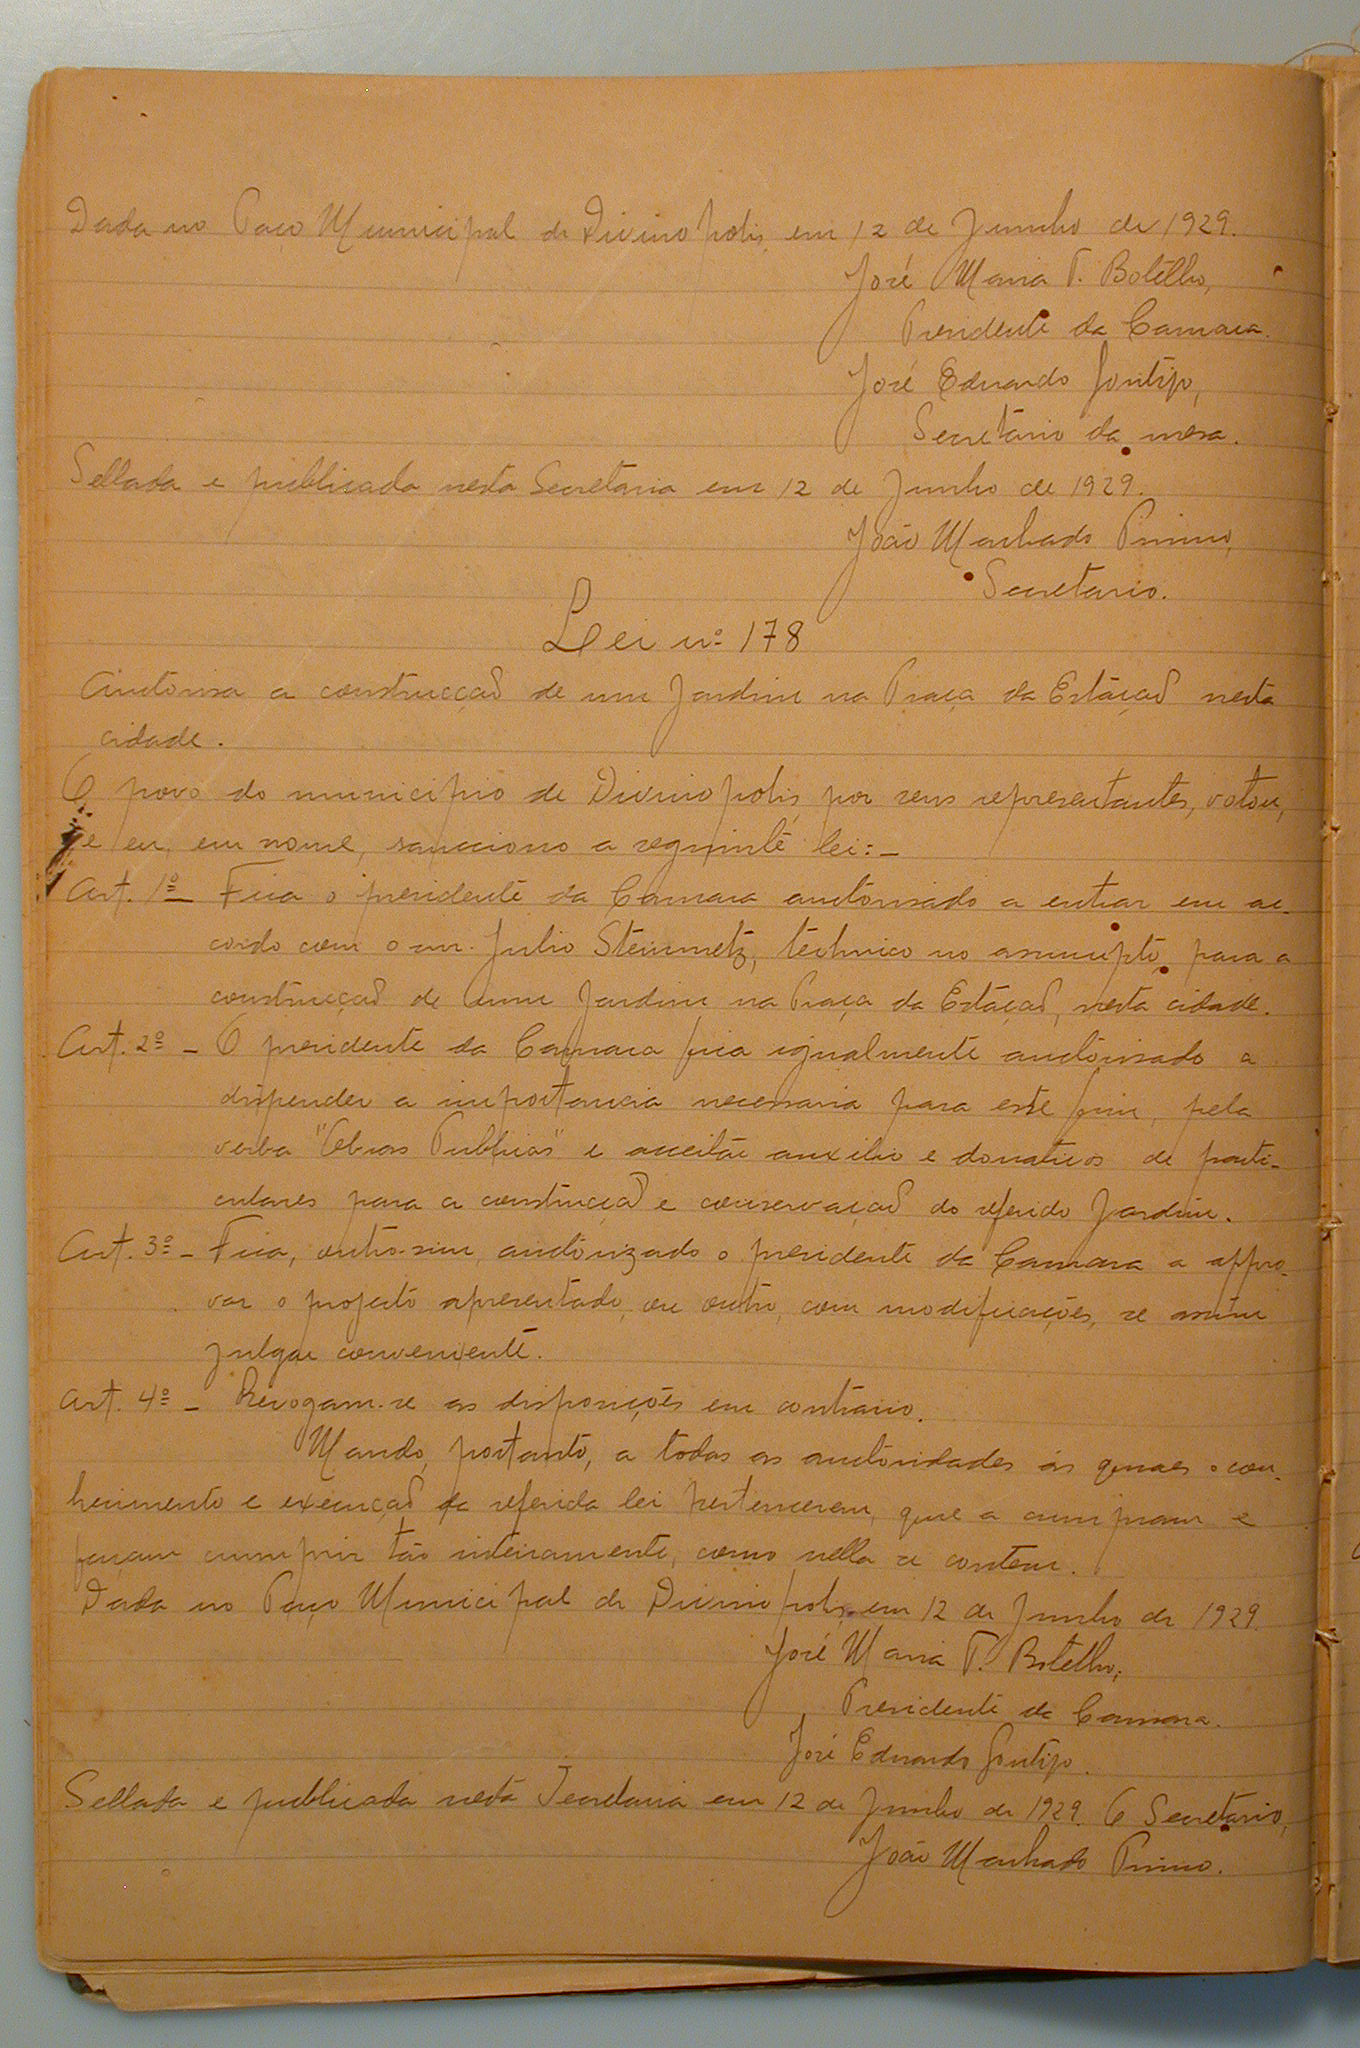 Dada no Paço Municipal de Divinopolis, em 12 de Junho de 1929.
José Maria P. Botelho,
Presidente da Camara.
José Eduardo Gontijo,
Secretario da mesa.
Sellada e publicada nesta Secretaria em 12 de Junho de 1929.
João Machado Primo,
Secretario.
Lei nº 178
Autorisa a construcção de um Jardim na Praça da Estação nesta
cidade.
O povo do municipio de Divinopolis, por seus representantes, votou,
e eu, em nome, sancciono a seguinte lei:-
Art. 1º - Fica o presidente da Camara auctorisado a entrar em ac-
cordo com o snr. Julio Steinmetz, technico no assumpto, para a
construcção de um Jardim na Praça da Estação, nesta cidade.
Art. 2º - O presidente da Camara fica egualmente auctorisado a
dispender a importancia necessaria para este fim, pela
verba "Obras Publicas" e acceitar auxilio e donativos de parti-
culares para a construcção e conservação do referido Jardim.
Art. 3º - Fica, outro-sim, auctorizado o presidente da Camara a appro-
var o projecto apresentado, ou outro, com modificações, se assim
julgar conveniente.
Art. 4º - Revogam-se as disposições em contrario.
Mando, portanto, a todas as auctoridades ás quaes o con-
hecimento e execução da referida lei pertencerem, que a cumpram e
façam cumprir tão inteiramente, como nella se contem.
Dada no Paço Municipal de Divinopolis, em 12 de Junho de 1929.
José Maria P. Botelho,
Presidente da Camara.
José Eduardo Gontijo.
Sellada e publicada nesta Secretaria em 12 de Junho de 1929. O Secretario,
João Machado Primo.